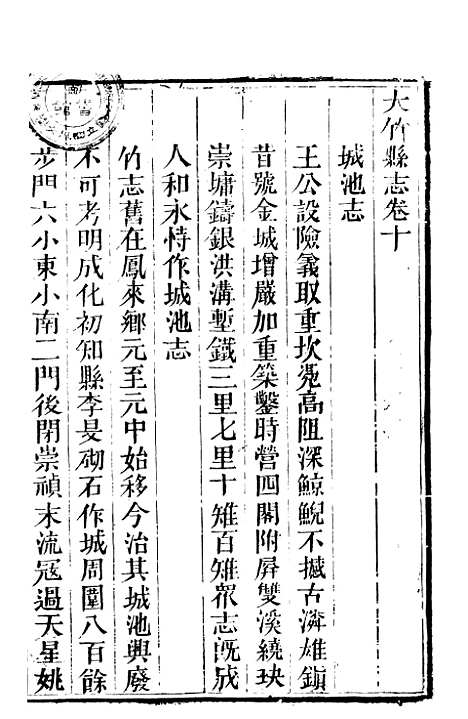 大竹縣志卷十
城池志
王公設險義取重坎堯高阻深鯨鯢不撼古濱雄鎮
昔號金城增嚴加重築鑿時營四關附屏雙溪繞玦
崇墉鑄銀洪溝塹鐵三里七里十雉百雉衆志旣成
人和永恃作城池志
竹志舊在鳳來鄉元至元中始移今治其城池興廢
不可考明成化初知縣李旻砌石作城周圍八百餘
步門六小東小南二門後閉崇禎末流寇過天星姚